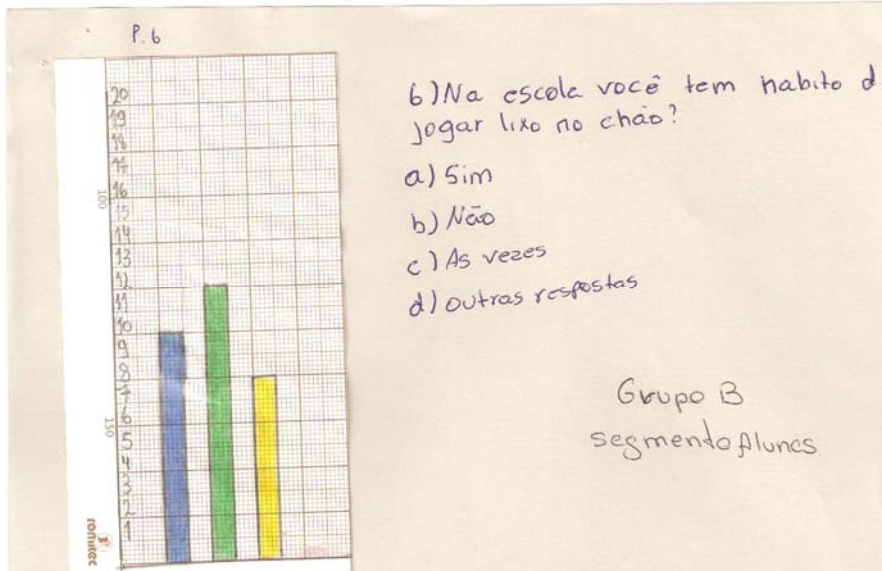 P.6
20
19
18
17
16
15
14
13
12
11
10
9
8
7
6
5
4
3
2
1
100
150
romitec
6) Na escola você tem habito d
jogar lixo no chão?
a) Sim
b) Não
c) As vezes
d) outras respostas
Grupo B
segmento Alunos